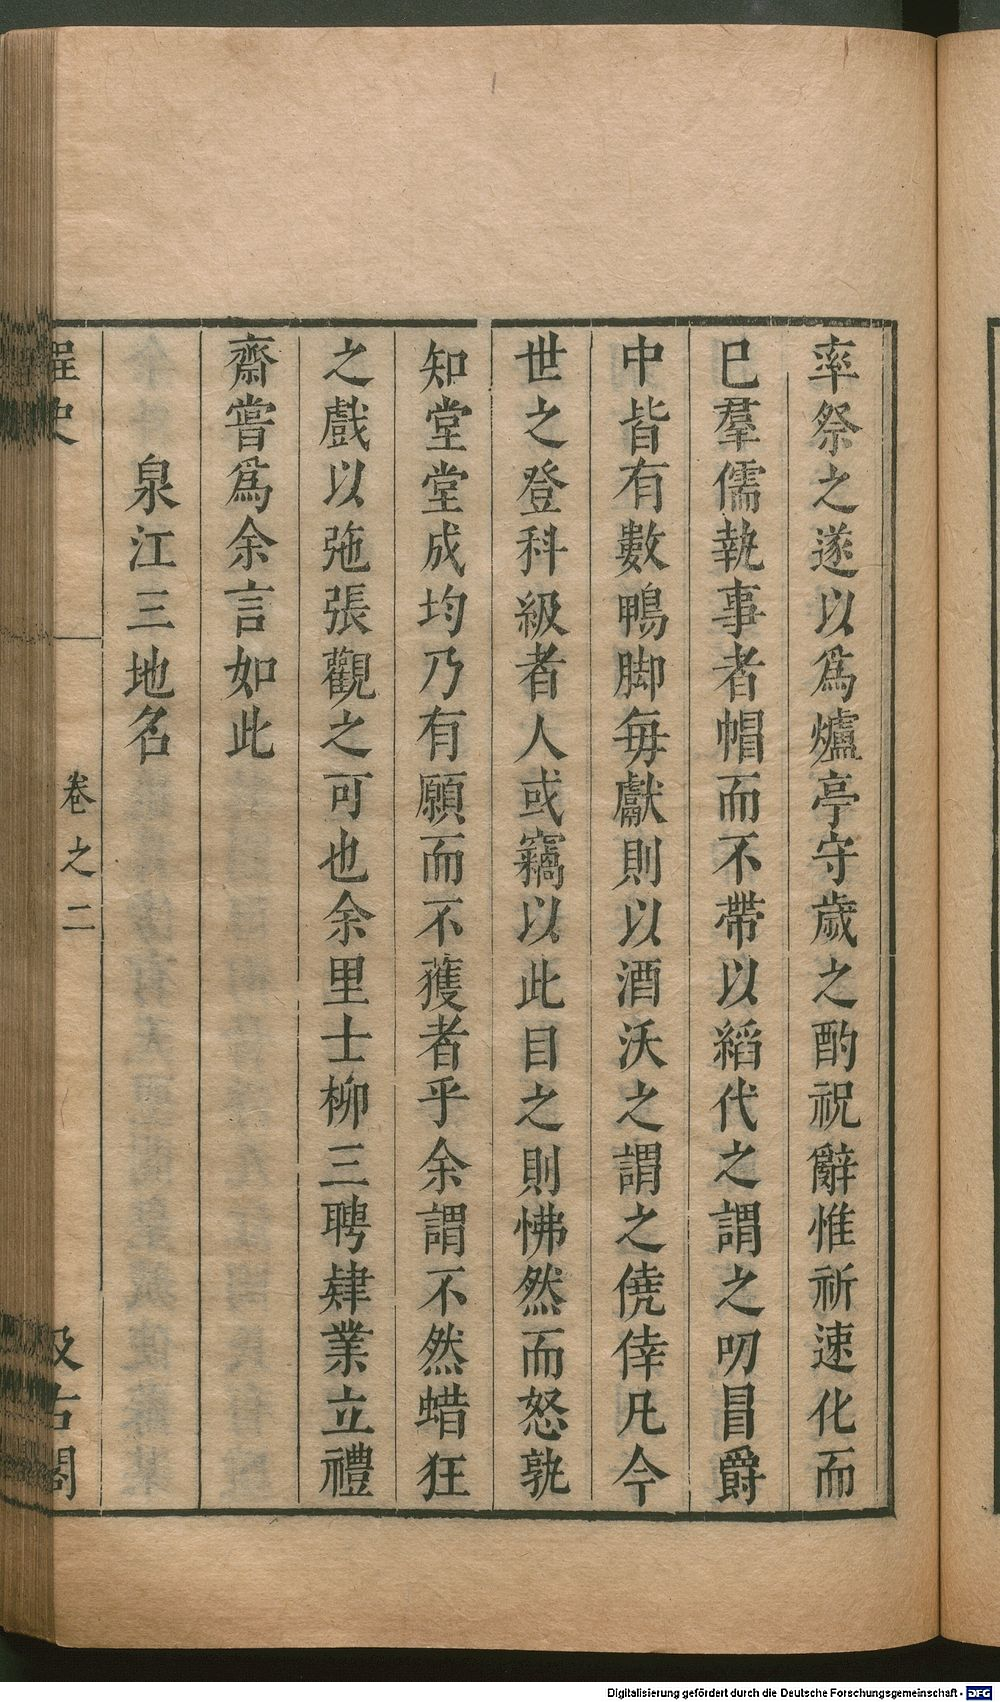 率祭之遂以爲爐亭守歲之酌祝辭惟祈速化而
已羣儒執事者帽而不帶以縚代之謂之叨冒爵
中皆有數鴨脚每獻則以酒沃之謂之僥倖凡今
世之登科級者人或竊以此目之則怫然而怒孰
知堂堂成均乃有願而不獲者乎余謂不然蜡狂
之戲以㢮張觀之可也余里士柳三聘肄業立禮
齋嘗爲余言如此
泉江三地名
桯史
卷之二
汲古閣
Digitalisierung gefördert durch die Deutsche Forschungsgemeinschaft - DFG